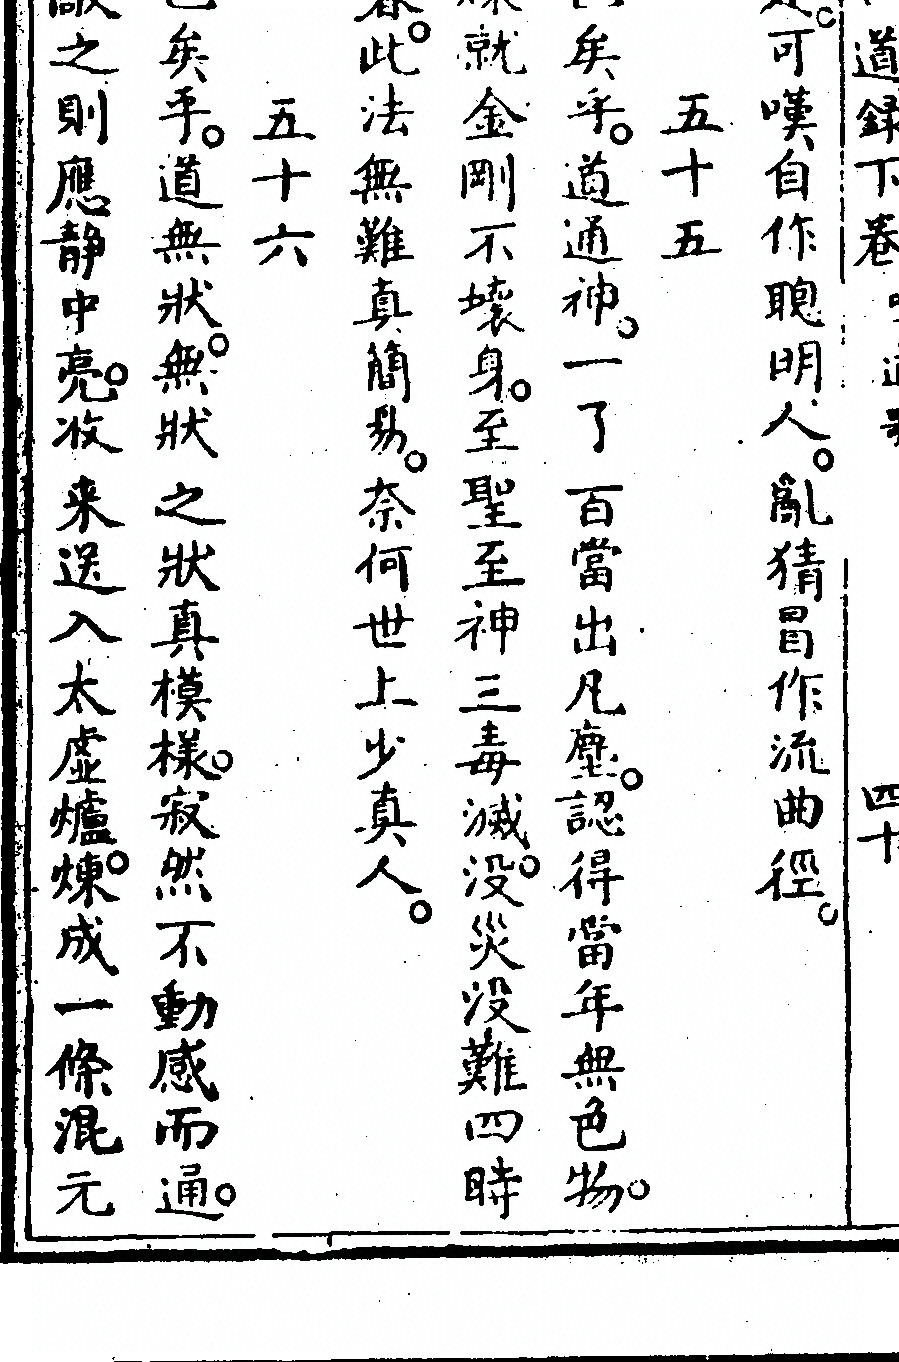 道録下卷
四十
可嘆自作聰明人。亂猜冒作流曲徑。
五十五
矣乎。道通神。一了百當出凡塵。認得當年無色物。
就金剛不壞身。至聖至神三毒滅。没災没難四時
春。此法無難真簡易。奈何世上少真人。
五十六
矣乎。道無狀。無狀之狀真模樣。寂然不動感而通。
敲之則應静中亮。收来送入太虛爐。煉成一條混元